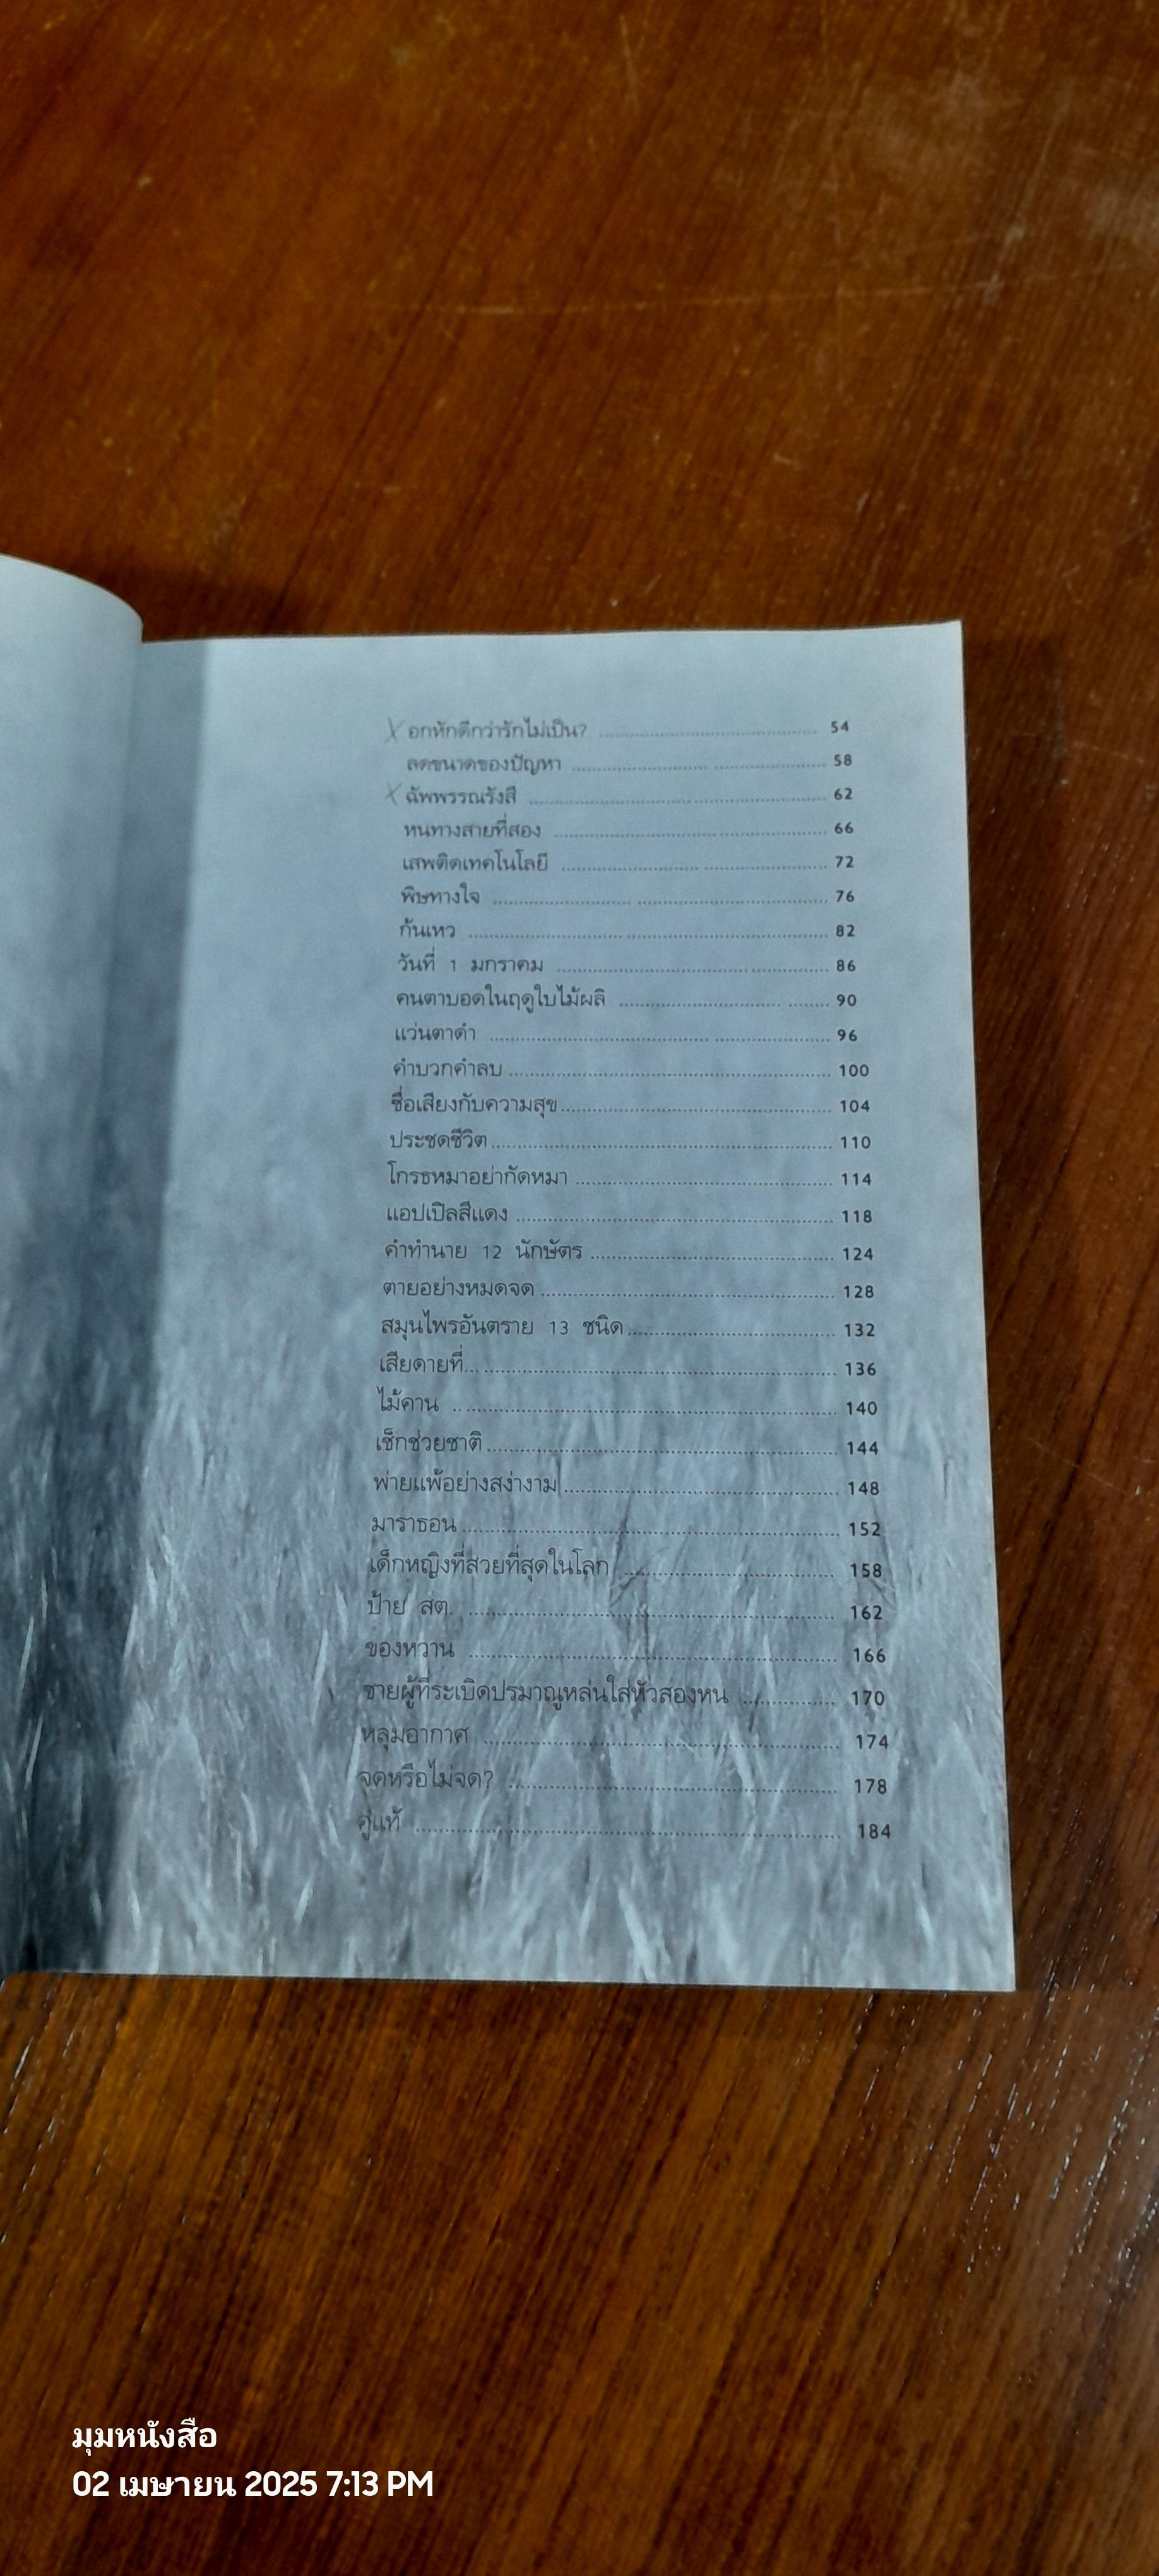 อกหักดีกว่ารักไม่เป็น? 54
ลดขนาดของปัญหา 58
ฉัพพรรณรังสี 62
หนทางสายที่สอง 66
เสพติดเทคโนโลยี 72
พิษทางใจ 76
ก้นเหว 82
วันที่ 1 มกราคม 86
คนตาบอดในฤดูใบไม้ผลิ 90
แว่นตาดำ 96
คำบวกคำลบ 100
ชื่อเสียงกับความสุข 104
ประชดชีวิต 110
โกรธหมาอย่ากัดหมา 114
แอปเปิลสีแดง 118
คำทำนาย 12 นักษัตร 124
ตายอย่างหมดจด 128
สมุนไพรอันตราย 13 ชนิด 132
เสียดายที่... 136
ไม้คาน 140
เช็กช่วยชาติ 144
พ่ายแพ้อย่างสง่างาม 148
มาราธอน 152
เด็กหญิงที่สวยที่สุดในโลก 158
ป้าย สต. 162
ของหวาน 166
ชายผู้ที่ระเบิดปรมาณูหล่นใส่หัวสองหน 170
หลุมอากาศ 174
จดหรือไม่จด? 178
คู่แท้ 184
มุมหนังสือ
02 เมษายน 2025 7:13 PM